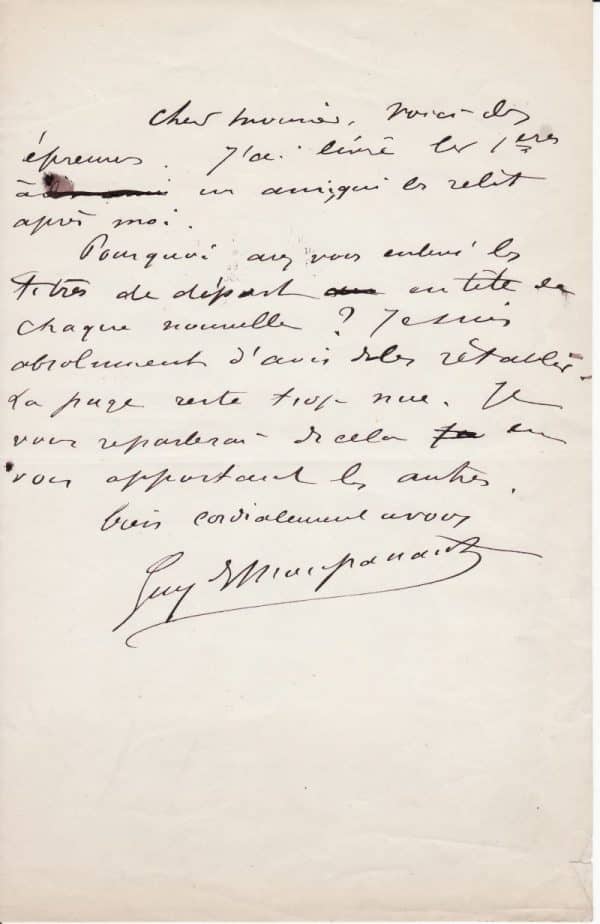 Cher monnier, voici des
épreuves. J'ai livré les 1ères
à un ami qui les relit
après moi.
Pourquoi avez vous enlevé les
titres de départ en tête de
chaque nouvelle ? Je suis
absolument d'avis de les rétablir.
La page reste trop nue. Je
vous reparlerai de cela en
vous apportant les autres.
bien cordialement a vous
Guy de Maupassant